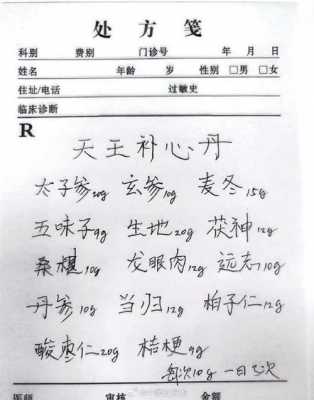 处方笺
科别 费别 门诊号 年 月 日
姓名 年龄 岁 性别 □男 □女
住址/电话 过敏史
临床诊断
R
天王补心丹
太子参20g 玄参10g 麦冬15g
五味子9g 生地20g 茯神12g
桑椹10g 龙眼肉12g 远志10g
丹参10g 当归12g 柏子仁12g
酸枣仁20g 桔梗9g
每次10g 一日3次
医师 审核 金额